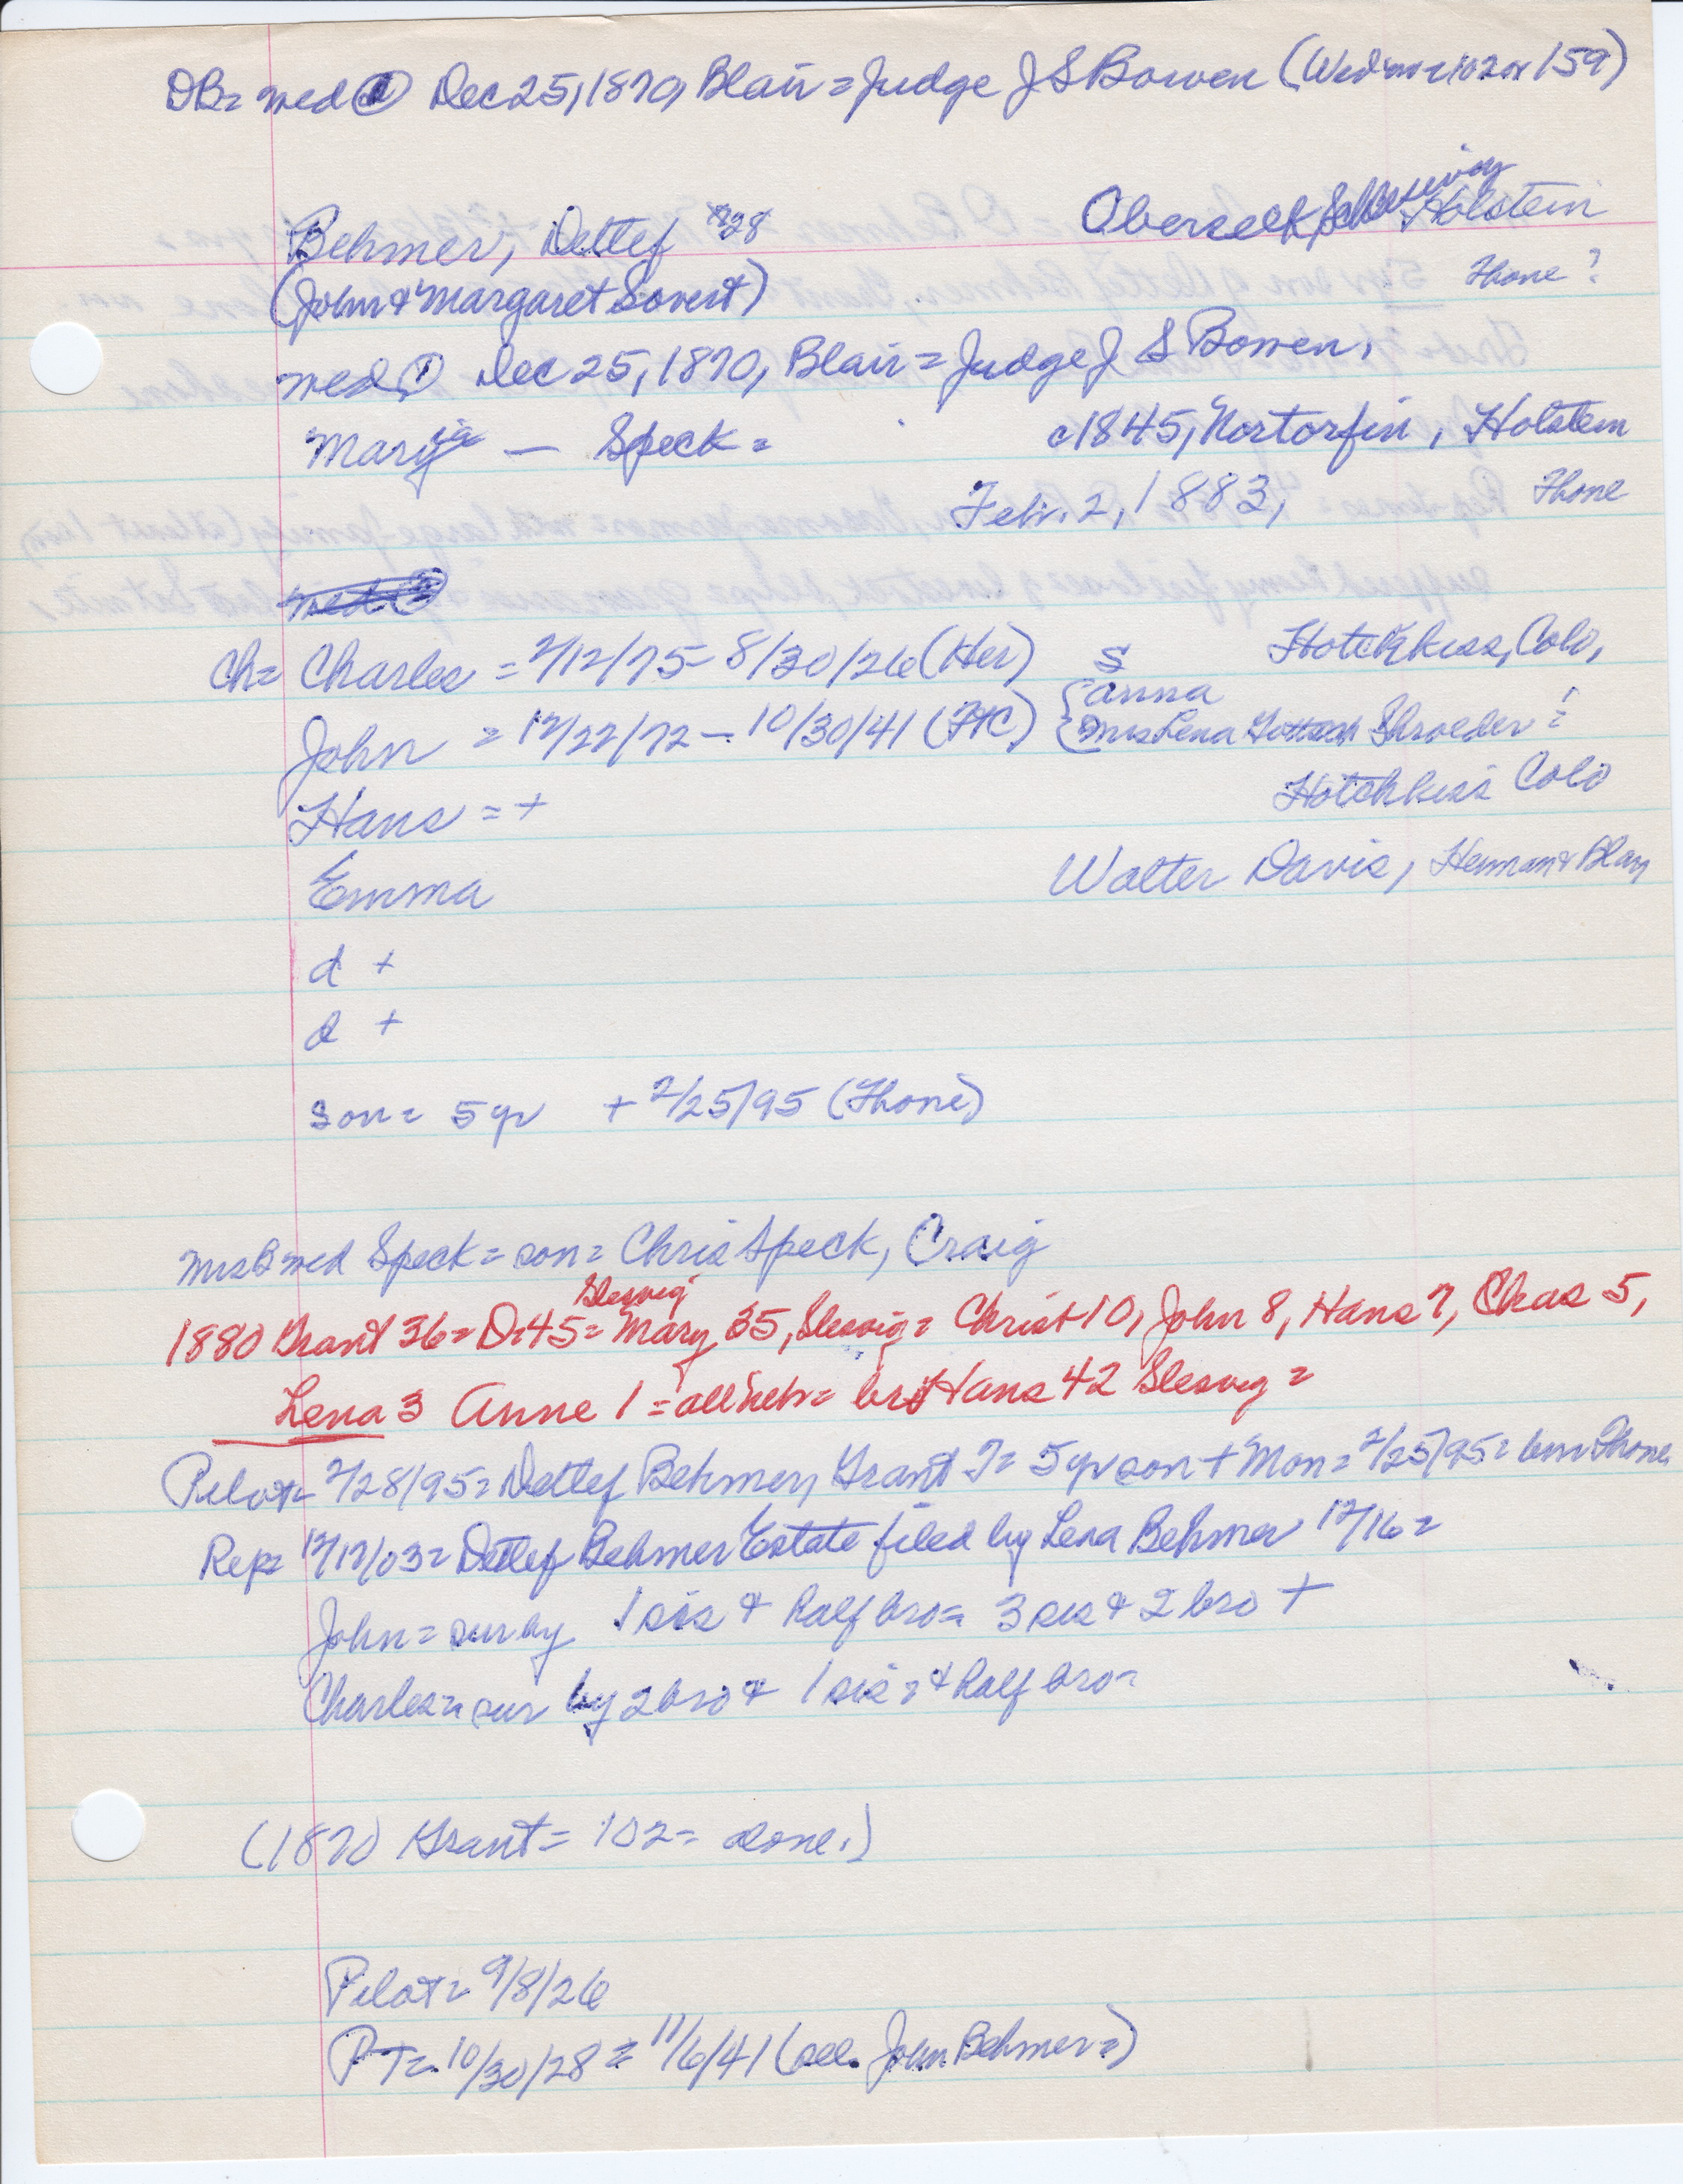 DB= wed ① Dec 25, 1870, Blair = Judge J S Bowen (Wed 159)
Behmer, Detlef #28
Holstein
(John & Margaret)
Thone ?
wed ① Dec 25, 1870, Blair = Judge J S Bowen,
Mary — Speck = c1845, Nortorfin, Holstein
Feb. 2, 1883, Thone
Ch= Charles = 2/12/75 - 8/30/26 (Her) S Hotchkiss, Colo,
{Anna
John = 12/22/72 - 10/30/41 (HC) {Mrs Lena Shroeder ?
Hans = + Hotchkiss Colo
Emma Walter Davis, Herman & Blair
d +
d +
son = 5 yr + 2/25/95 (Thone)
Mrs B wed Speck = son = Chris Speck, Craig
Slesvig
1880 Grant 36 = D. 45 = Mary 35, Slesvig = Christ 10, John 8, Hans 7, Chas 5,
Lena 3 Anne 1 = all Neb = bro Hans 42 Slesvig =
Pilot = 2/28/95 = Detlef Behmer, Grant T = 5 yr son + Mon = 2/25/95 = bur Thone
Rep = 12/17/03 = Detlef Behmer Estate filed by Lena Behmer 12/16 =
John = sur by 1 sis & half bro = 3 sis & 2 bro +
Charles = sur by 2 bro & 1 sis = & half bro =
(1870 Grant = 102 = alone.)
Pilot = 9/8/26
PT = 10/30/28 = 11/6/41 (see John Behmer =)